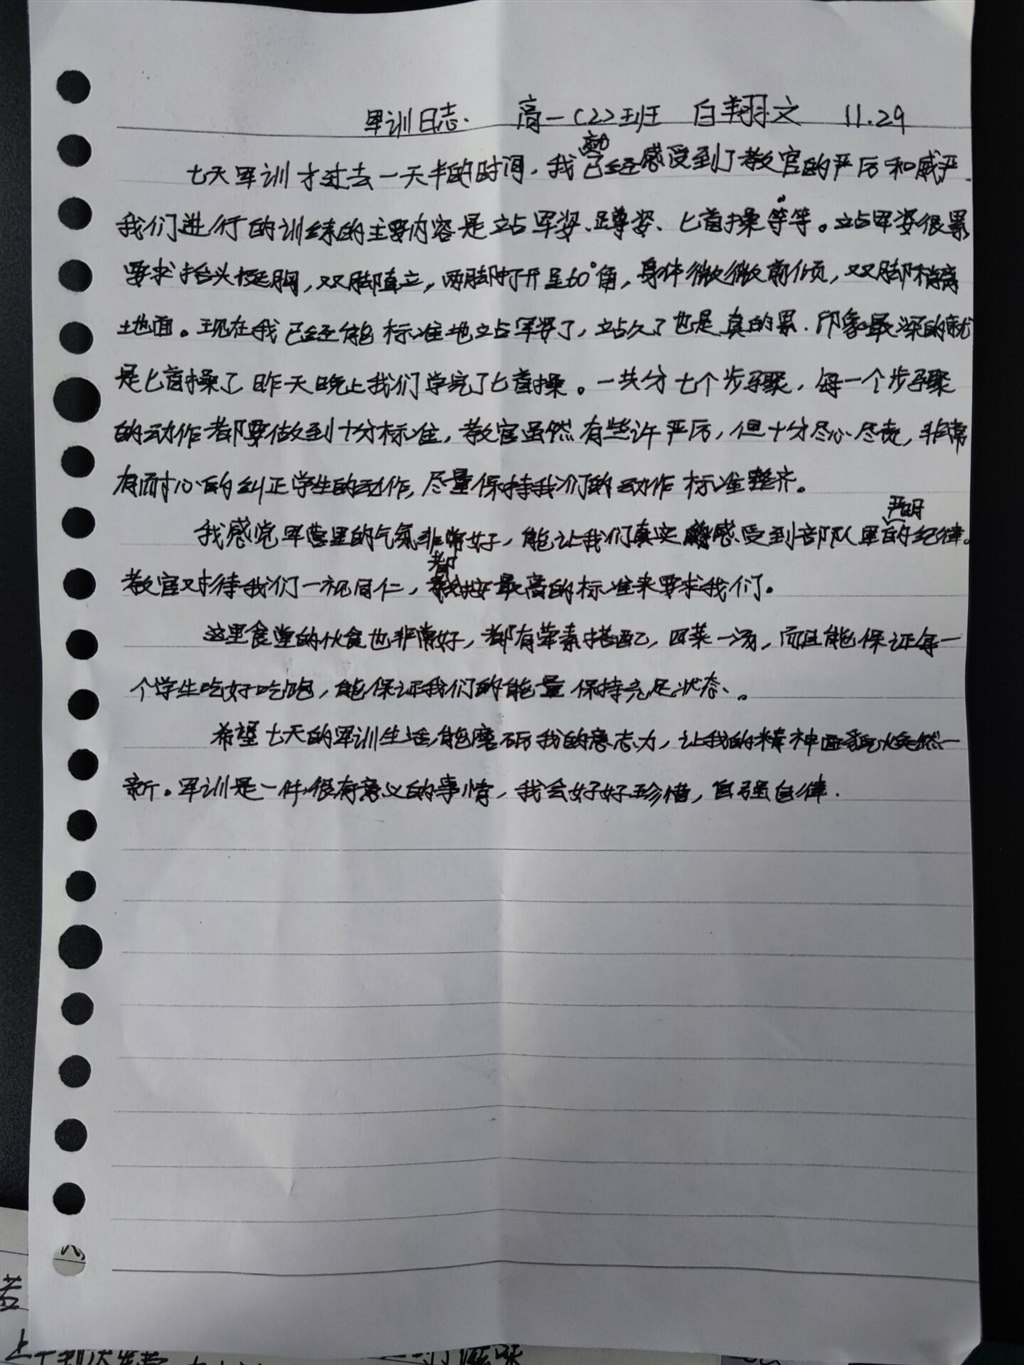 军训日志. 高一(2)班 白翔文 11.29
七天军训才过去一天半的时间,我就已经感受到了教官的严厉和威严.
我们进行的训练的主要内容是立站军姿、蹲姿、匕首操等等。立站军姿很累
要求抬头挺胸,双脚直立,两脚打开呈60°角,身体微微前倾,双脚稍离
地面。现在我已经能标准地立站军姿了,站久了也是真的累.印象最深的就
是匕首操了 昨天晚上我们学完了匕首操。一共分七个步骤,每一个步骤
的动作都要做到十分标准,教官虽然有些许严厉,但十分尽心尽责,非常
有耐心的纠正学生的动作,尽量保持我们的动作标准整齐。
我感觉军营里的气氛非常好,能让我们真实感受到部队里严明的纪律。
教官对待我们一视同仁,都按最高的标准来要求我们。
这里食堂的伙食也非常好,都有荤素搭配,四菜一汤,而且能保证每一
个学生吃好吃饱,能保证我们的能量保持充足状态、。
希望七天的军训生活能磨砺我的意志力,让我的精神面貌焕然一
新。军训是一件很有意义的事情,我会好好珍惜,自强自律.